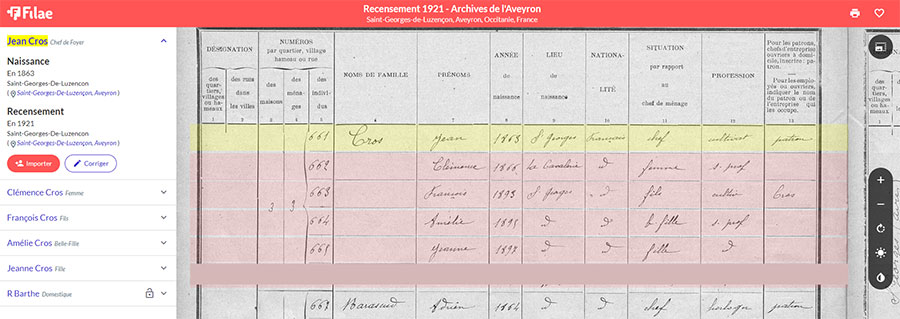 Filae
Recensement 1921 - Archives de l'Aveyron
Saint-Georges-de-Luzençon, Aveyron, Occitanie, France
Jean Cros Chef de Foyer
Naissance
En 1863
Saint-Georges-De-Luzencon
( Saint-Georges-De-Luzençon, Aveyron )
Recensement
En 1921
Saint-Georges-De-Luzencon
( Saint-Georges-De-Luzençon, Aveyron )
Importer
Corriger
Clémence Cros Femme
François Cros Fils
Amélie Cros Belle-Fille
Jeanne Cros Fille
R Barthe Domestique
DÉSIGNATION
des quartiers, villages ou hameaux
des rues dans les villes
NUMÉROS
par quartier, village hameau ou rue
des maisons
des ménages
des individus
NOMS DE FAMILLE
PRÉNOMS
ANNÉE de naissance
LIEU de naissance
NATIONALITÉ
SITUATION par rapport au chef de ménage
PROFESSION
Pour les patrons, chefs d'entreprise, ouvriers à domicile, inscrire: patron.
Pour les employés ou ouvriers, indiquer le nom du patron ou de l'entreprise qui les occupe.
1 2 3 4 5 6 7 8 9 10 11 12 13
661 Cros Jean 1863 St georges française chef cultivat patron
662 Clémence 1866 la Cavalerie d femme s. prof
663 François 1893 St georges d fils cultiv Cros
3 3 664 Amélie 1895 d d b. fille s. prof
665 Jeanne 1897 d d fille d
667 Adrien 1864 d d chef horloger patron
DÉSIG
des quartiers, villages ou hameaux
1